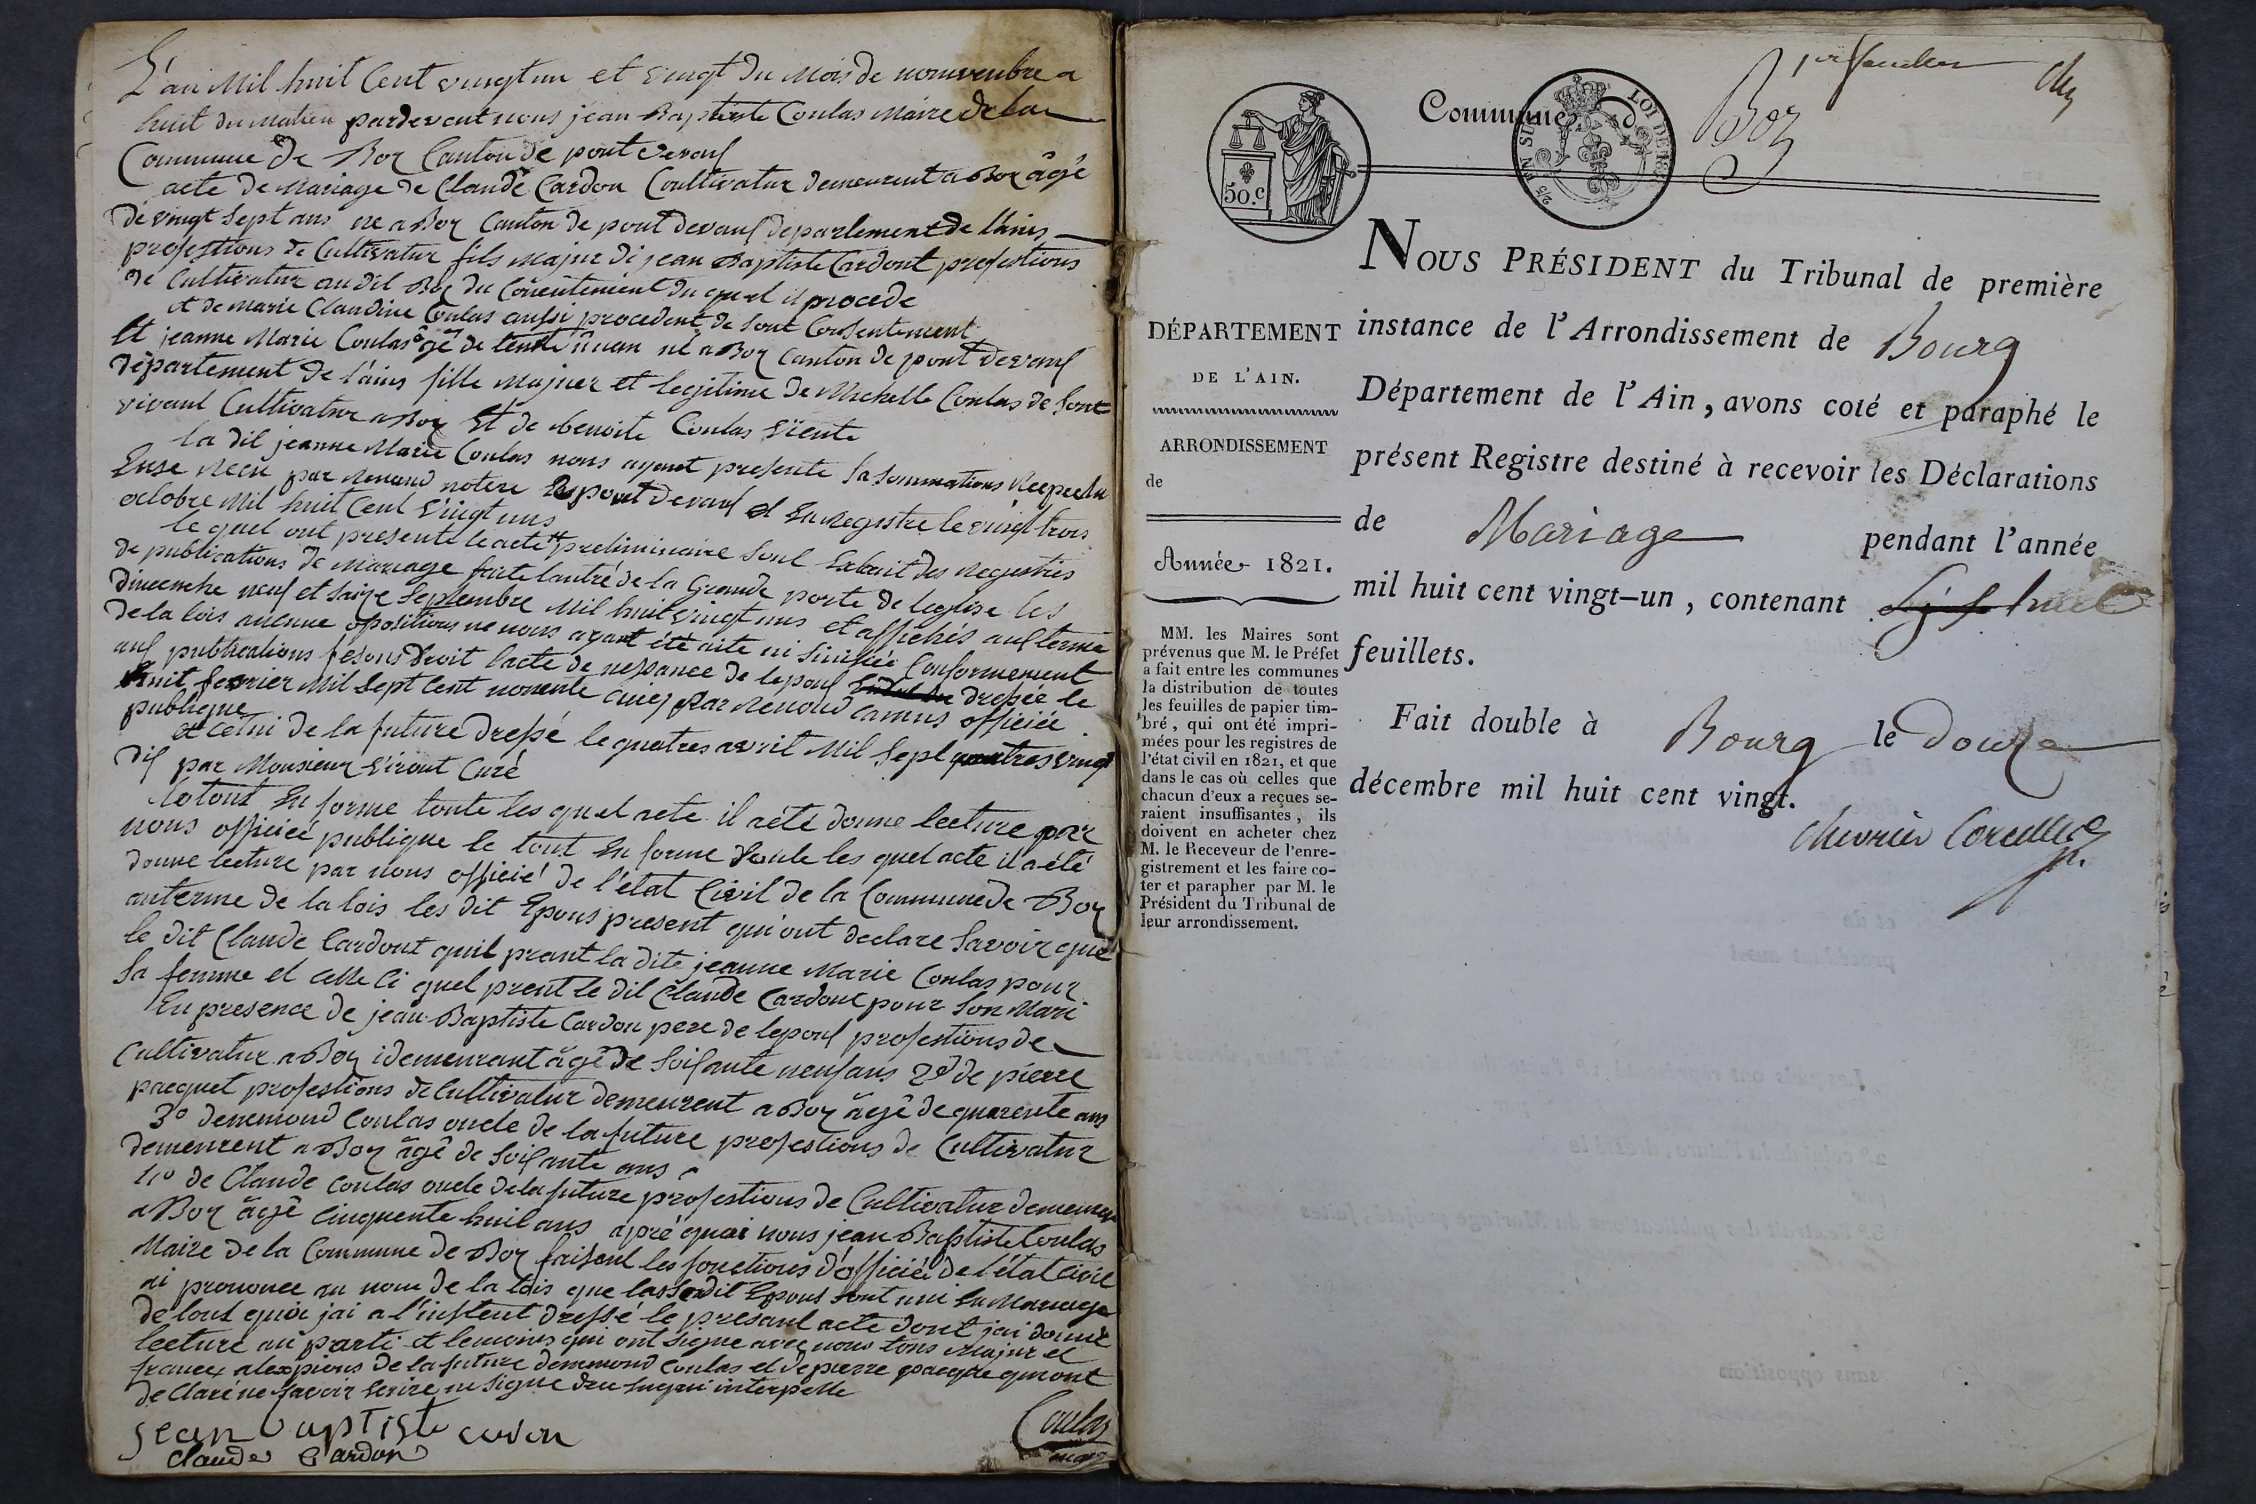 L'an Mil huit Cent vingt un et vingt du Mois de nomvenbre a
huit du matien pardevent nous jean Baptiste Coulas Maire de la
Commune de Boz Canton de pont devaux
acte de Mariage de Claude Cardon Coultivatur demeurent a Boz âgê
de vingt Sept ans ne a Boz Canton de pont devaux departement de l'ains
profestions de Cultivatur fils Majur di jean Baptiste Cardont profestions
de Cultivatur au dit Boz du Conentement du quel il procede
et de Marie Claudine Coulas aussi procedent de Sont Consentement
Et jeanne Marie Coulas âgê de tente un an né a Boz Canton de pont devaux
département de l'ains fille Majuer et legitime de Michelle Coulas de Sont
vivant Cultivatur a Boz Et de benoite Coulas
la dit jeanne Marie Coulas nous ayent presente Sa Sommations Respectu
Euse Recu par Renaud notere pont devaux et En Registre le vingt trois
octobre Mil huit Cent Vingt uns
le quel ont presente le acte preliminaire Sont Extrait des Registres
de publications de Mariage faite lantré de la Grande porte de leglise les
dimenche neuf et Saize Septembre Mil huit vingt uns et affichés aux terme
de la lois aucune opositions ne nous ayant été aite ni Sinifiée Conformement
aux publications fesons droit l'acte de nessance de lepoux dressée le
huit fevrier Mil Sept Cent nonente Cinq par Renoud Camus officiée
publique
et Celui de la future dressé le quatres avril Mil Sept quatres vingt
dix par Monsieur Curé
le tout En forme toute les quel acte il aété donne lecture par
nous officiée publique le tout En forme toute les quel acte il a été
donne lecture par nous officié de l'état Civil de la Commune de Boz
anterme de la lois les dit Epous present qui ont declare Savoir que
le dit Claude Cardont quil prent la dite jeanne Marie Coulas pour
Sa femme et Celle Ci quel prent le dit Claude Cardont pour Son Mari
En presence de jean Baptiste Cardon pere de lepoux profestions de
Cultivatur a Boz idemeurant âgé de Soisante neuf ans 2º de pierre
pacquet profestions de Cultivatur demeurent a Boz âgé de quarente ans
3º denemond Coulas oncle de la future profestions de Cultivatur
demeurent a Boz âgé de Soisante ans
4º de Claude Coulas oncle de la future profestions de Cultivatur demeuren
a Boz âgé Cinquente huit ans apré quoi nous jean Baptiste Coulas
Maire de la Commune de Boz faisent les fonctions d'officié de l'état Civil
ai prononce au nom de la lois que les Epous Sont uni En Mariage
de tout quoi jai a l'instent dressé le present acte dont jai donné
lecture au parti et temoins qui ont Signe avec nous tous Majur et
france de la future denemond Coulas et de pierre pacque quiont
de Clare ne Savoir Ecrire ni Signe interpelle
jean baptiste cardon
Claude Cardon
Coulas
maire
1er feuillet
Commune d Boz
50.c
LOI DE
NOUS PRÉSIDENT du Tribunal de première
instance de l'Arrondissement de Bourg
Département de l'Ain, avons coté et paraphé le
présent Registre destiné à recevoir les Déclarations
de Mariage pendant l'année
mil huit cent vingt-un, contenant huit
feuillets.
Fait double à Bourg le douze
décembre mil huit cent vingt.
Chevrier Corcelles
DÉPARTEMENT
DE L'AIN.
ARRONDISSEMENT
de
Année 1821.
MM. les Maires sont
prévenus que M. le Préfet
a fait entre les communes
la distribution de toutes
les feuilles de papier tim-
bré, qui ont été impri-
mées pour les registres de
l'état civil en 1821, et que
dans le cas où celles que
chacun d'eux a reçues se-
raient insuffisantes, ils
doivent en acheter chez
M. le Receveur de l'enre-
gistrement et les faire co-
ter et parapher par M. le
Président du Tribunal de
leur arrondissement.